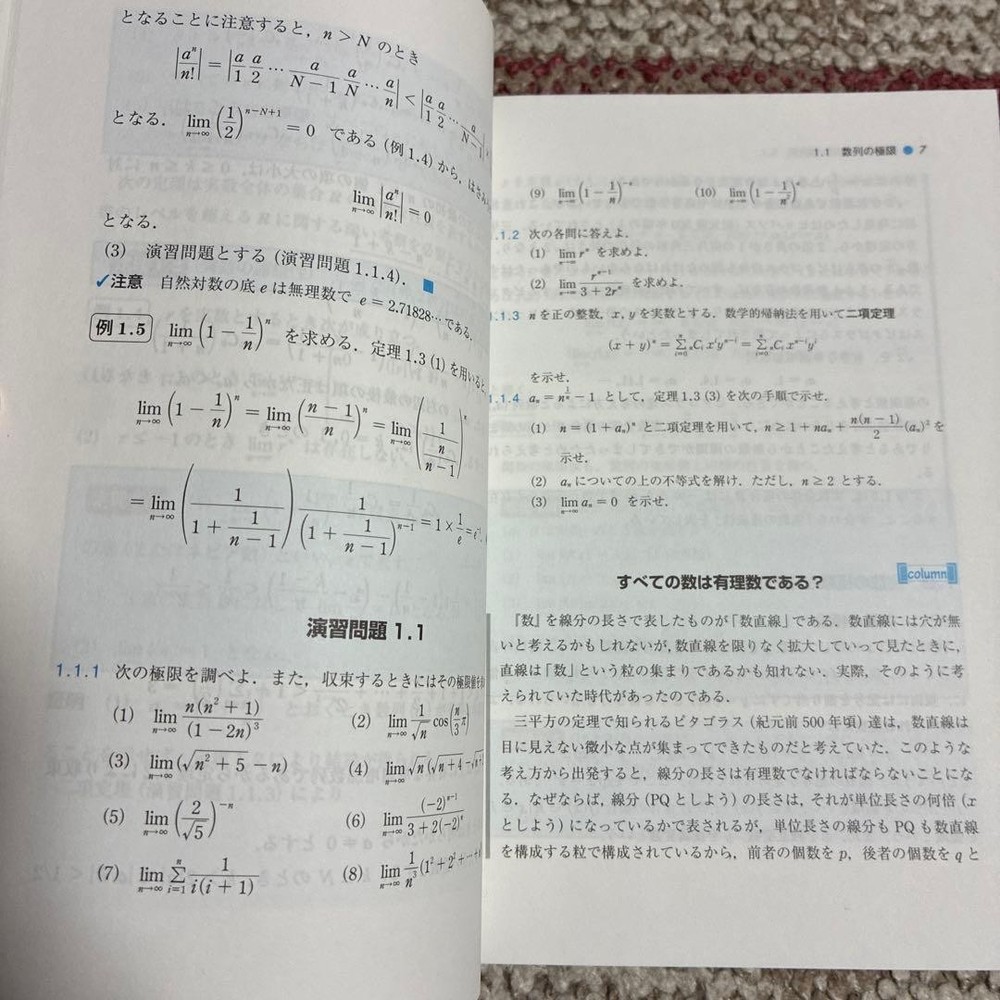 となることに注意すると，n > N のとき
|aⁿ/n!| = |a/1 a/2 ⋯ a/(N−1) a/N ⋯ a/n| < |a/1 a/2 ⋯ a/(N−1)|
となる． lim_{n→∞} (1/2)^{n−N+1} = 0 である (例 1.4) から，はさみ
lim_{n→∞} |aⁿ/n!| = 0
となる．
(3) 演習問題とする (演習問題 1.1.4)． ■
✓注意 自然対数の底 e は無理数で e = 2.71828⋯ である．
例 1.5 lim_{n→∞} (1 − 1/n)ⁿ を求める．定理 1.3 (1) を用いると
lim_{n→∞} (1 − 1/n)ⁿ = lim_{n→∞} ((n − 1)/n)ⁿ = lim_{n→∞} (1/(n/(n−1)))ⁿ
= lim_{n→∞} (1/(1 + 1/(n−1))) 1/(1 + 1/(n−1))^{n−1} = 1 × 1/e = e⁻¹.
演習問題 1.1
1.1.1 次の極限を調べよ．また，収束するときにはその極限値を
(1) lim_{n→∞} n(n² + 1)/(1 − 2n)³ (2) lim_{n→∞} 1/√n cos(n/3 π)
(3) lim_{n→∞} (√(n² + 5) − n) (4) lim_{n→∞} √n (√(n + 4) − √n
(5) lim_{n→∞} (2/√5)^{−n} (6) lim_{n→∞} (−2)^{n−1}/(3 + 2(−2)ⁿ)
(7) lim_{n→∞} Σ_{i=1}^{n} 1/(i(i + 1)) (8) lim_{n→∞} 1/n³ (1² + 2² + ⋯ +
1.1 数列の極限 ● 7
(9) lim_{n→∞} (1 − 1/n)^{−n} (10) lim_{n→∞} (1 − 1/n²)ⁿ
1.1.2 次の各問に答えよ．
(1) lim_{n→∞} rⁿ を求めよ．
(2) lim_{n→∞} r^{n−1}/(3 + 2rⁿ) を求めよ．
1.1.3 n を正の整数，x, y を実数とする．数学的帰納法を用いて二項定理
(x + y)ⁿ = Σ_{i=0}^{n} ₙCᵢ xⁱy^{n−i} = Σ_{i=0}^{n} ₙCᵢ x^{n−i}yⁱ
を示せ．
1.1.4 aₙ = n^{1/n} − 1 として，定理 1.3 (3) を次の手順で示せ．
(1) n = (1 + aₙ)ⁿ と二項定理を用いて，n ≥ 1 + naₙ + n(n − 1)/2 (aₙ)² を
示せ．
(2) aₙ についての上の不等式を解け．ただし，n ≥ 2 とする．
(3) lim_{n→∞} aₙ = 0 を示せ．
column
すべての数は有理数である？
『数』を線分の長さで表したものが「数直線」である．数直線には穴が無
いと考えるかもしれないが，数直線を限りなく拡大していって見たときに，
直線は「数」という粒の集まりであるかも知れない．実際，そのように考
えられていた時代があったのである．
三平方の定理で知られるピタゴラス (紀元前 500 年頃) 達は，数直線は
目に見えない微小な点が集まってできたものだと考えていた．このような
考え方から出発すると，線分の長さは有理数でなければならないことにな
る．なぜならば，線分 (PQ としよう) の長さは，それが単位長さの何倍 (x
としよう) になっているかで表されるが，単位長さの線分も PQ も数直線
を構成する粒で構成されているから，前者の個数を p，後者の個数を q と